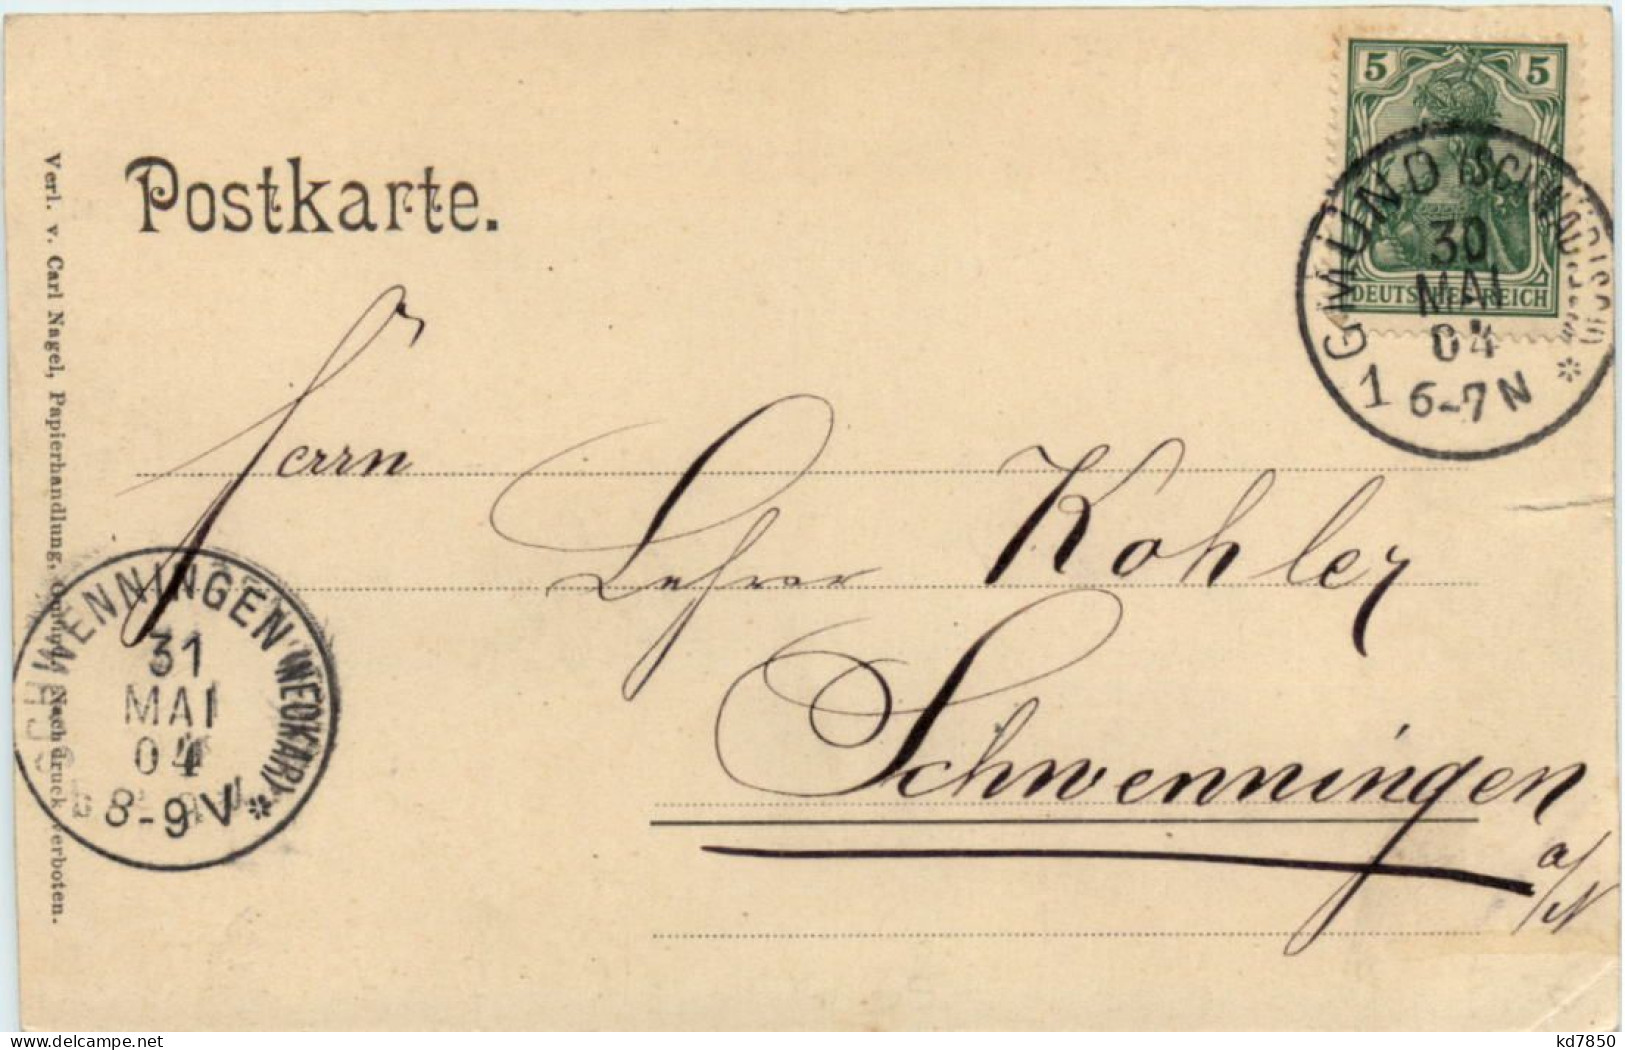 Postkarte.
5 5
DEUTSCHES REICH
GMÜND (SCHWÄBISCH)
30
MAI
04
1 6-7 N *
Herrn
Lehrer Kohler
Schwenningen
a/N
SCHWENNINGEN (NECKAR)
31
MAI
04
8-9 V *
Verl. v. Carl Nagel, Papierhandlung, Gmünd. Nachdruck verboten.
delcampe.net
kd7850